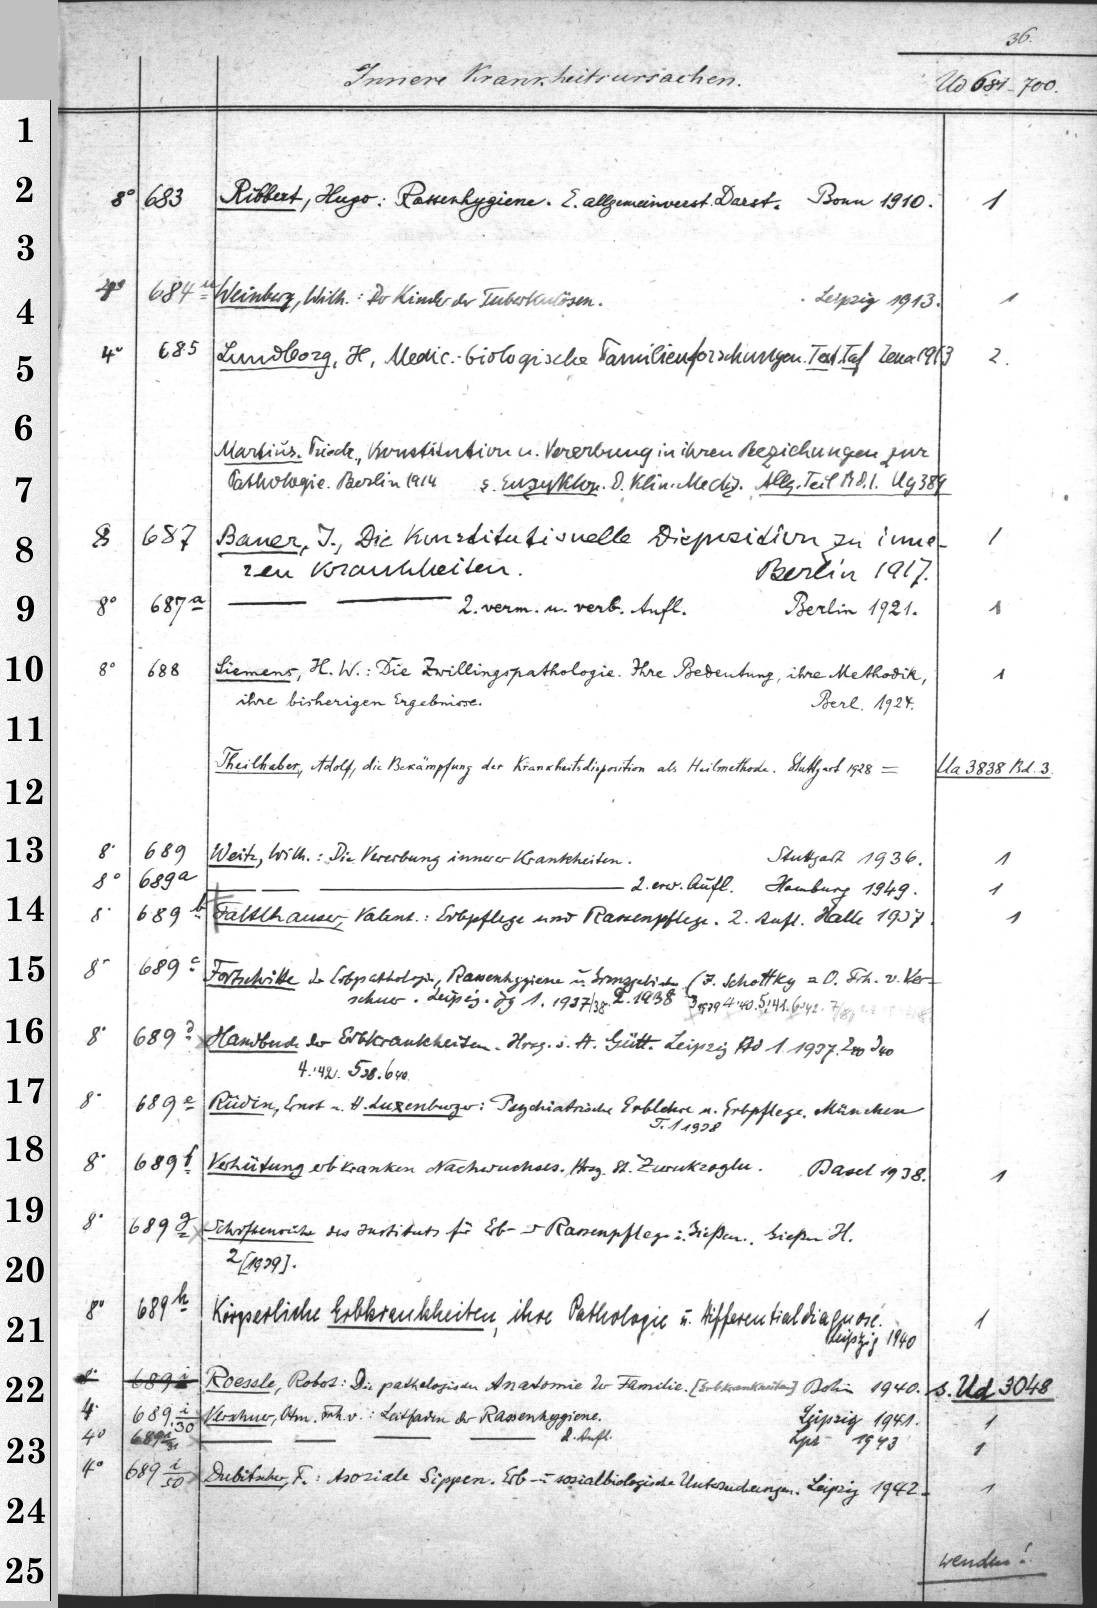 36.
Innere Krankheitsursachen. Ud 681-700.
1
2
3
4
5
6
7
8
9
10
11
12
13
14
15
16
17
18
19
20
21
22
23
24
25
8° 683 Ribbert, Hugo: Rassenhygiene. E. allgemeinverst. Darst. Bonn 1910. 1
4° 684 a Weinberg, Wilh.: Die Kinder der Tuberkulösen. Leipzig 1913. 1
4° 685 Lundborg, H, Medic.-biologische Familienforschungen. Text Taf Jena 1913 2.
Martius. Friedr., Konstitution u. Vererbung in ihren Beziehungen zur
Pathologie. Berlin 1914 s. Enzyklop. d. Klin. Mediz. Allg. Teil Bd. 1. Ug 389
8 687 Bauer, J., Die Konstitutionelle Disposition zu inne-
ren Krankheiten. Berlin 1917. 1
8° 687 a — — 2. verm. u. verb. Aufl. Berlin 1921. 1
8° 688 Siemens, H. W.: Die Zwillingspathologie. Ihre Bedeutung, ihre Methodik, 1
ihre bisherigen Ergebnisse. Berl. 1924.
Theilhaber, Adolf, die Bekämpfung der Krankheitsdisposition als Heilmethode. Stuttgart 1928 = Ua 3838 Bd. 3.
8° 689 Weitz, Wilh.: Die Vererbung innerer Krankheiten. Stuttgart 1936. 1
8° 689a — — 2. erw. Aufl. Hamburg 1949. 1
8° 689 b Faltlhauser, Valent.: Erbpflege und Rassenpflege. 2. Aufl. Halle 1937. 1
8° 689 c Fortschritte der Erbpathologie, Rassenhygiene u. Grenzgebiete (J. Schottky = O. Frh. v. Ver-
schuer. Leipzig. Jg 1. 1937/38 2. 1938 3 1939 4 '40. 5, '41. 6 '42. 7/8,
8° 689 d Handbuch der Erbkrankheiten. Hrsg. v. A. Gütt. Leipzig Bd 1. 1937. 2 40 3 40
4. '42. 5 38. 6 40.
8° 689 e Rüdin, Ernst u. H. Luxenburger: Psychiatrische Erblehre u. Erbpflege. München
T. 1 1938
8° 689 f Verhütung erbkranken Nachwuchses. Hrsg. St. Zurukzoglu. Basel 1938. 1
8° 689 g Schriftenreihe des Instituts für Erb- u Rassenpflege i. Gießen. Gießen H.
2 [1939].
8° 689 h Körperliche Erbkrankheiten, ihre Pathologie u. Differentialdiagnose. 1
Leipzig 1940
8° 689 i Roessle, Robert: Die pathologische Anatomie der Familie. [Erbkrankheiten] Berlin 1940. s. Ud 3048
4° 689 i/30 Verschuer, Otm. Frh. v.: Leitfaden der Rassenhygiene. Leipzig 1941. 1
4° 689 i/31 — — — — 2. Aufl. Lpz 1943 1
4° 689 i/50 Dubitscher, F.: Asoziale Sippen. Erb- u sozialbiologische Untersuchungen. Leipzig 1942. 1
wenden!